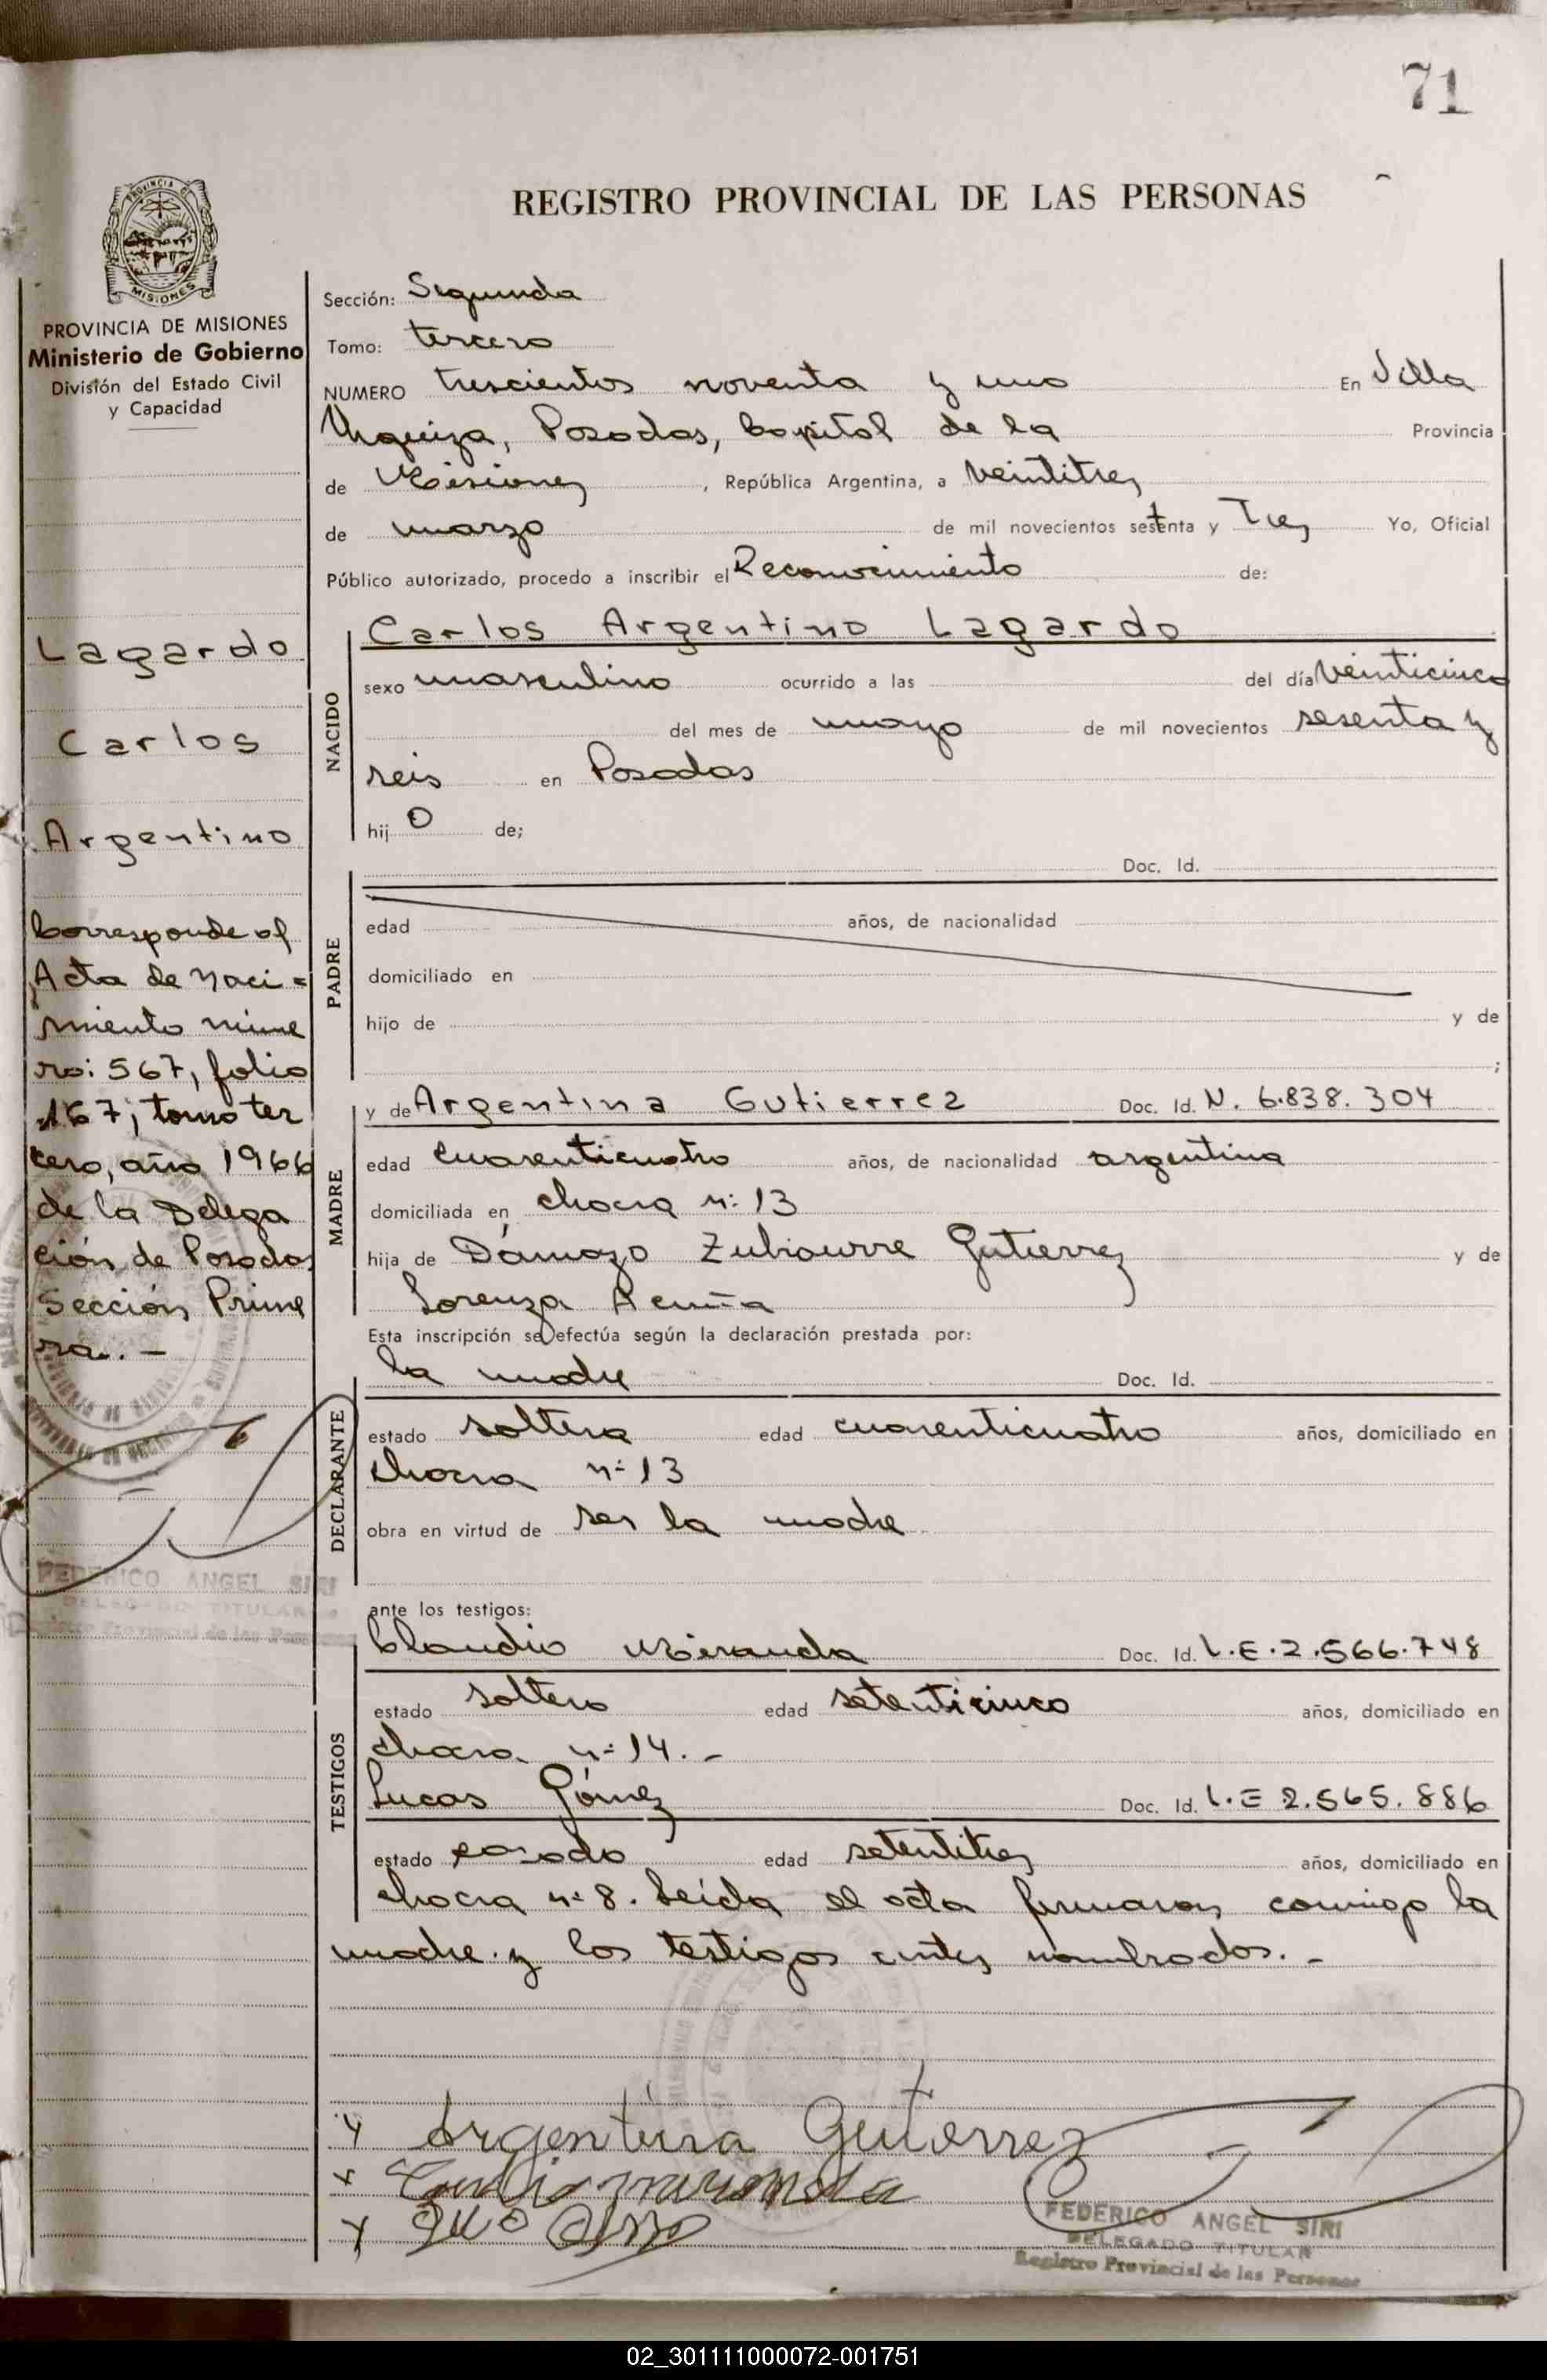 71
REGISTRO PROVINCIAL DE LAS PERSONAS
MISIONES
PROVINCIA DE MISIONES
Ministerio de Gobierno
División del Estado Civil
y Capacidad
Lagardo
Carlos
Argentino
Corresponde al
Acta de Naci=
miento núme
ro: 567, folio
167; tomo ter
cero, año 1966
de la Delega
ción de Posadas
Sección Prime
ra. -
FEDERICO ANGEL SIRI
DELEGADO TITULAR
Registro Provincial de las Personas
Sección: Segunda
Tomo: tercero
NUMERO trescientos noventa y uno En Villa
Urquiza, Posadas, Capital de la Provincia
de Misiones, República Argentina, a veintitres
de marzo de mil novecientos setenta y Tres Yo, Oficial
Público autorizado, procedo a inscribir el Reconocimiento de:
NACIDO
Carlos Argentino Lagardo
sexo masculino ocurrido a las del día veinticinco
del mes de mayo de mil novecientos sesenta y
seis en Posadas
hij o de;
PADRE
Doc. Id.
edad años, de nacionalidad
domiciliado en
hijo de y de
;
MADRE
y de Argentina Gutierrez Doc. Id. N. 6.838.304
edad cuarenticuatro años, de nacionalidad argentina
domiciliada en chacra n: 13
hija de Dámazo Zubiaurre Gutierrez y de
Lorenza Acuña
Esta inscripción se efectúa según la declaración prestada por:
DECLARANTE
la madre Doc. Id.
estado soltera edad cuarenticuatro años, domiciliado en
chacra n: 13
obra en virtud de ser la madre
ante los testigos:
TESTIGOS
Claudio Miranda Doc. Id. L.E.2.566.748
estado soltero edad setenticinco años, domiciliado en
chacra n: 14. -
Lucas Gómez Doc. Id. L.E 2.565.886
estado casado edad setentitres años, domiciliado en
chacra n: 8. Leída el acta firmaron conmigo la
madre y los testigos antes nombrados. -
Argentina Gutierrez
FEDERICO ANGEL SIRI
DELEGADO TITULAR
Registro Provincial de las Personas
02_301111000072-001751